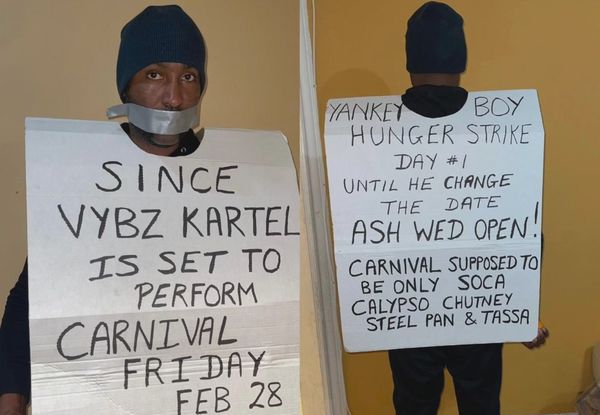 SINCE
VYBZ KARTEL
IS SET TO
PERFORM
CARNIVAL
FRIDAY
FEB 28
YANKEY BOY
HUNGER STRIKE
DAY #1
UNTIL HE CHANGE
THE DATE
ASH WED OPEN!
CARNIVAL SUPPOSED TO
BE ONLY SOCA
CALYPSO CHUTNEY
STEEL PAN & TASSA